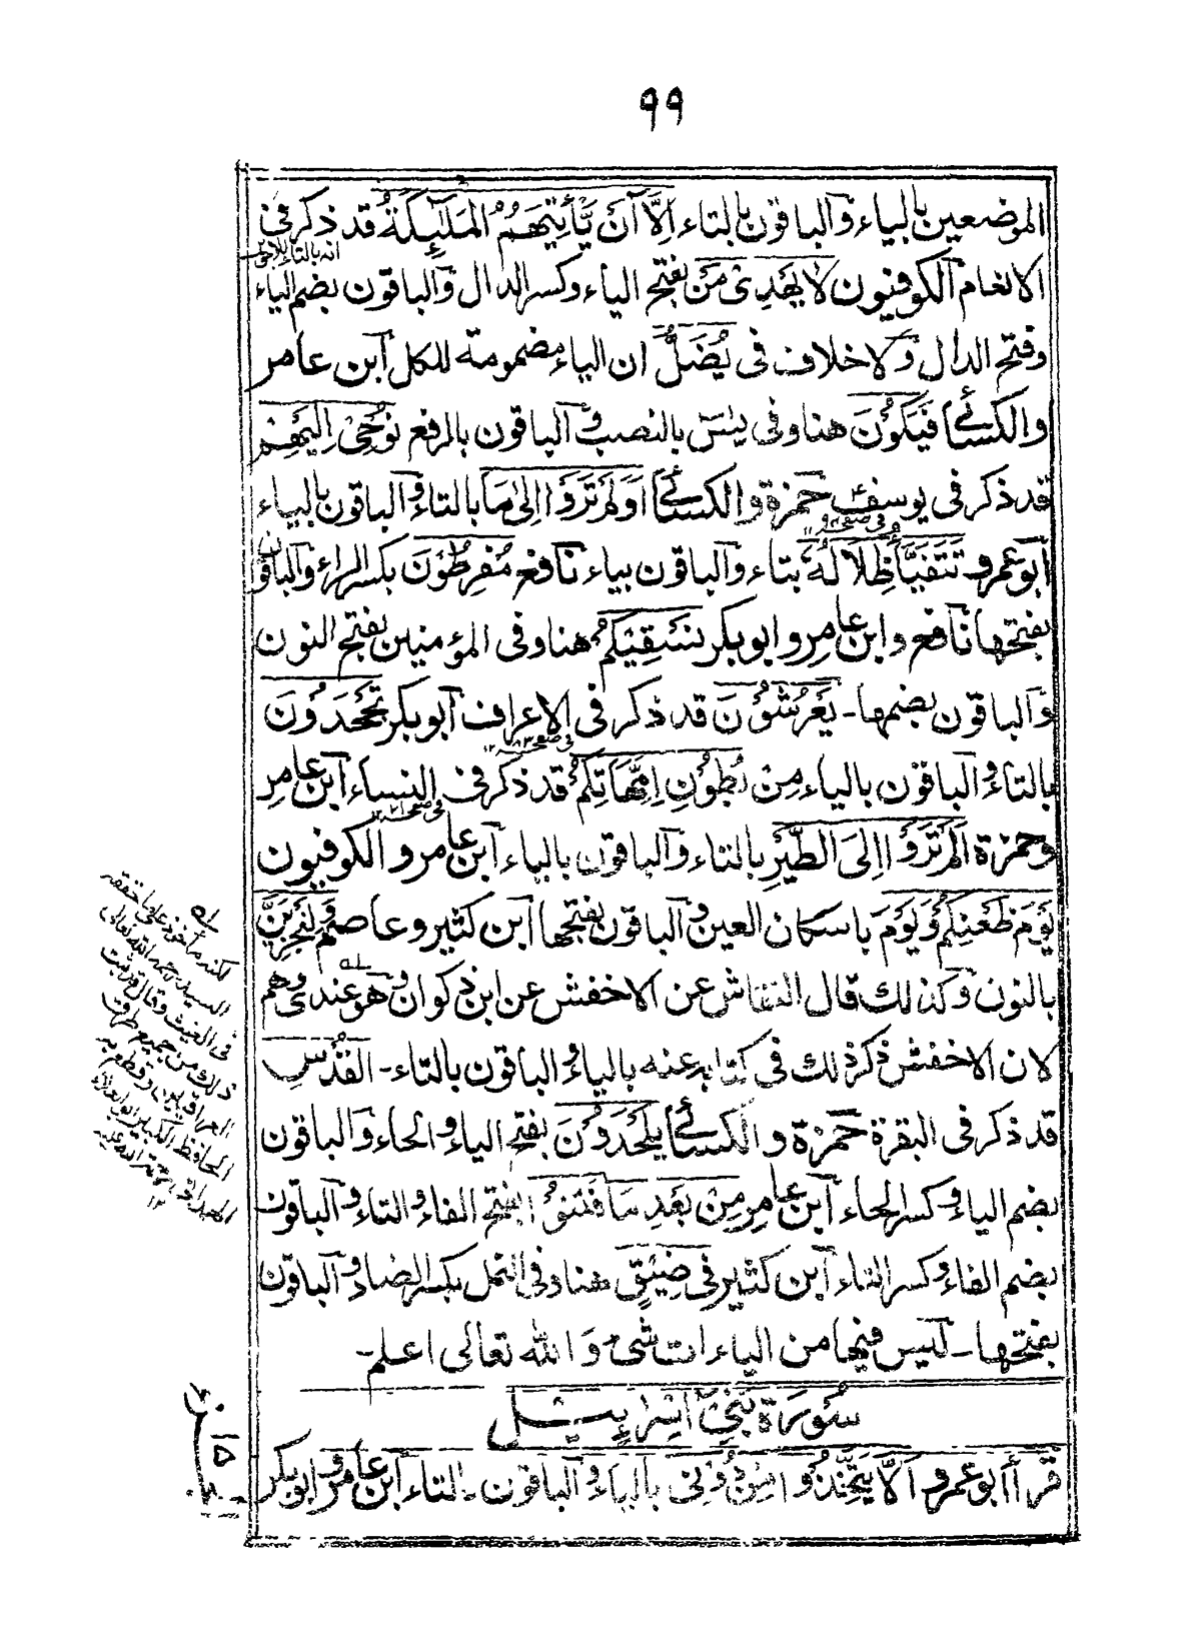 ۹۹
الموضعين بالياء والباقون بالتاء اِلَّا اَنْ يَّأْتِيَهُمُ الْمَلٰٓئِكَةُ قد ذكر فى
الانعام الكوفيون لَا يَهْدِىْ مَنْ بفتح الياء وكسر الدال والباقون بضم الياء
وفتح الدال ولا خلاف فى يُضِلُّ ان الياء مضمومة للكل ابن عامر
والكسائى فَيَكُوْنَ هنا وفى يٰسٓ بالنصب والباقون بالرفع نُوْحِىْ اِلَيْهِمْ
قد ذكر فى يوسف حمزة والكسائى اَوَلَمْ تَرَوْا اِلىٰ مَا بالتاء والباقون بالياء
ابو عمرو تَتَفَيَّأُ ظِلَالُهُ بتاء والباقون بياء نافع مُفْرِطُوْنَ بكسر الراء والباقون
بفتحها نافع وابن عامر وابو بكر نَسْقِيْكُمْ هنا وفى المؤمنين بفتح النون
والباقون بضمها۔ يَعْرُشُوْنَ قد ذكر فى الاعراف ابو بكر تَجْحَدُوْنَ
بالتاء والباقون بالياء مِنْ بُطُوْنِ اِمَّهَاتِكُمْ قد ذكر فى النساء ابن عامر
وحمزة اَلَمْ تَرَوْا اِلَى الطَّيْرِ بالتاء والباقون بالياء ابن عامر والكوفيون
يَوْمَ ظَعْنِكُمْ وَيَوْمَ باسكان العين والباقون بفتحها ابن كثير وعاصم وَلَنَجْزِيَنَّ
بالنون وكذلك قال النقاش عن الاخفش عن ابن ذكوان وهو عندى وهم
لان الاخفش ذكر ذلك فى كتابه عنه بالياء والباقون بالتاء۔ الْقُدُسِ
قد ذكر فى البقرة حمزة والكسائى يَلْحَدُوْنَ بفتح الياء والحاء والباقون
بضم الياء وكسر الحاء ابن عامر مِنْ بَعْدِ مَا فَتَنُوْا بفتح الفاء والتاء والباقون
بضم الفاء وكسر التاء ابن كثير فى ضِيْقٍ هنا وفى النمل بكسر الضاد والباقون
بفتحها۔ ليس فيها من الياءات شىء والله تعالى اعلم۔
سُوْرَةُ بَنِىْٓ اِسْرَاءِيْلَ
قرأ ابو عمرو اَلَّا يَتَّخِذُوْا مِنْ دُوْنِى بالياء والباقون بالتاء ابن عامر وابو بكر